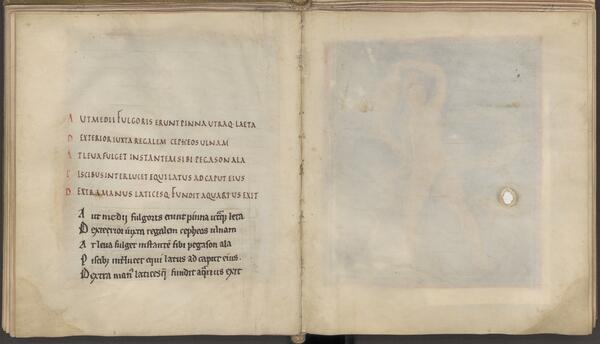 AUT MEDII FULGORIS ERUNT PINNA UTRAQ· LAETA
DEXTERIOR IUXTA REGALEM CEPHEOS ULNAM
AT LEUA FULGET INSTANTEM SIBI PEGASON ALA
PISCIBUS INTERLUCET EQUI LATUS AD CAPUT EIUS
DEXTRA MANUS LATICESQ· FUNDIT AQUARIUS EXIT
Aut medii fulgoris erunt pinna utraq; leta
Dexterior iuxta regalem cepheos ulnam
At leua fulget instantē sibi pegason ala
equi latus ad caput eius.
Dextra man' laticesq; fundit exit